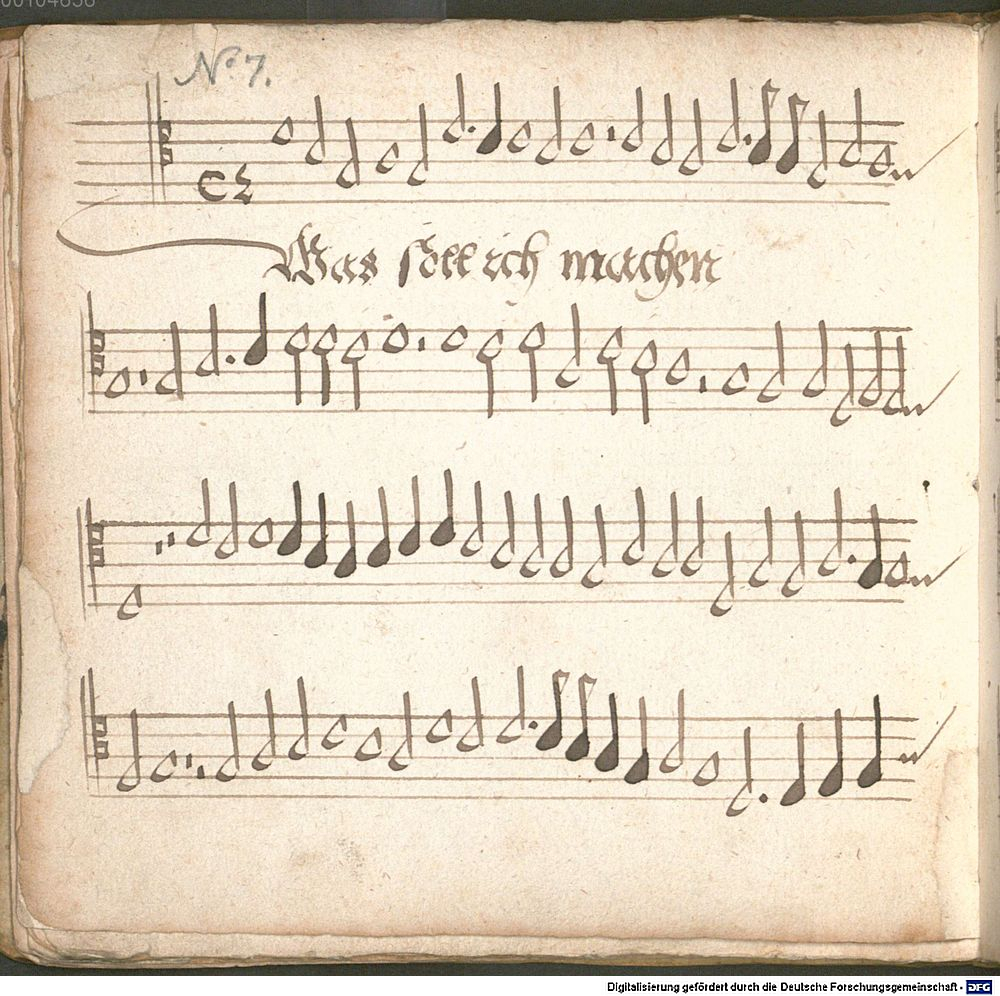 00104636
No. 7.
Was soll ich machen
Digitalisierung gefördert durch die Deutsche Forschungsgemeinschaft - DFG